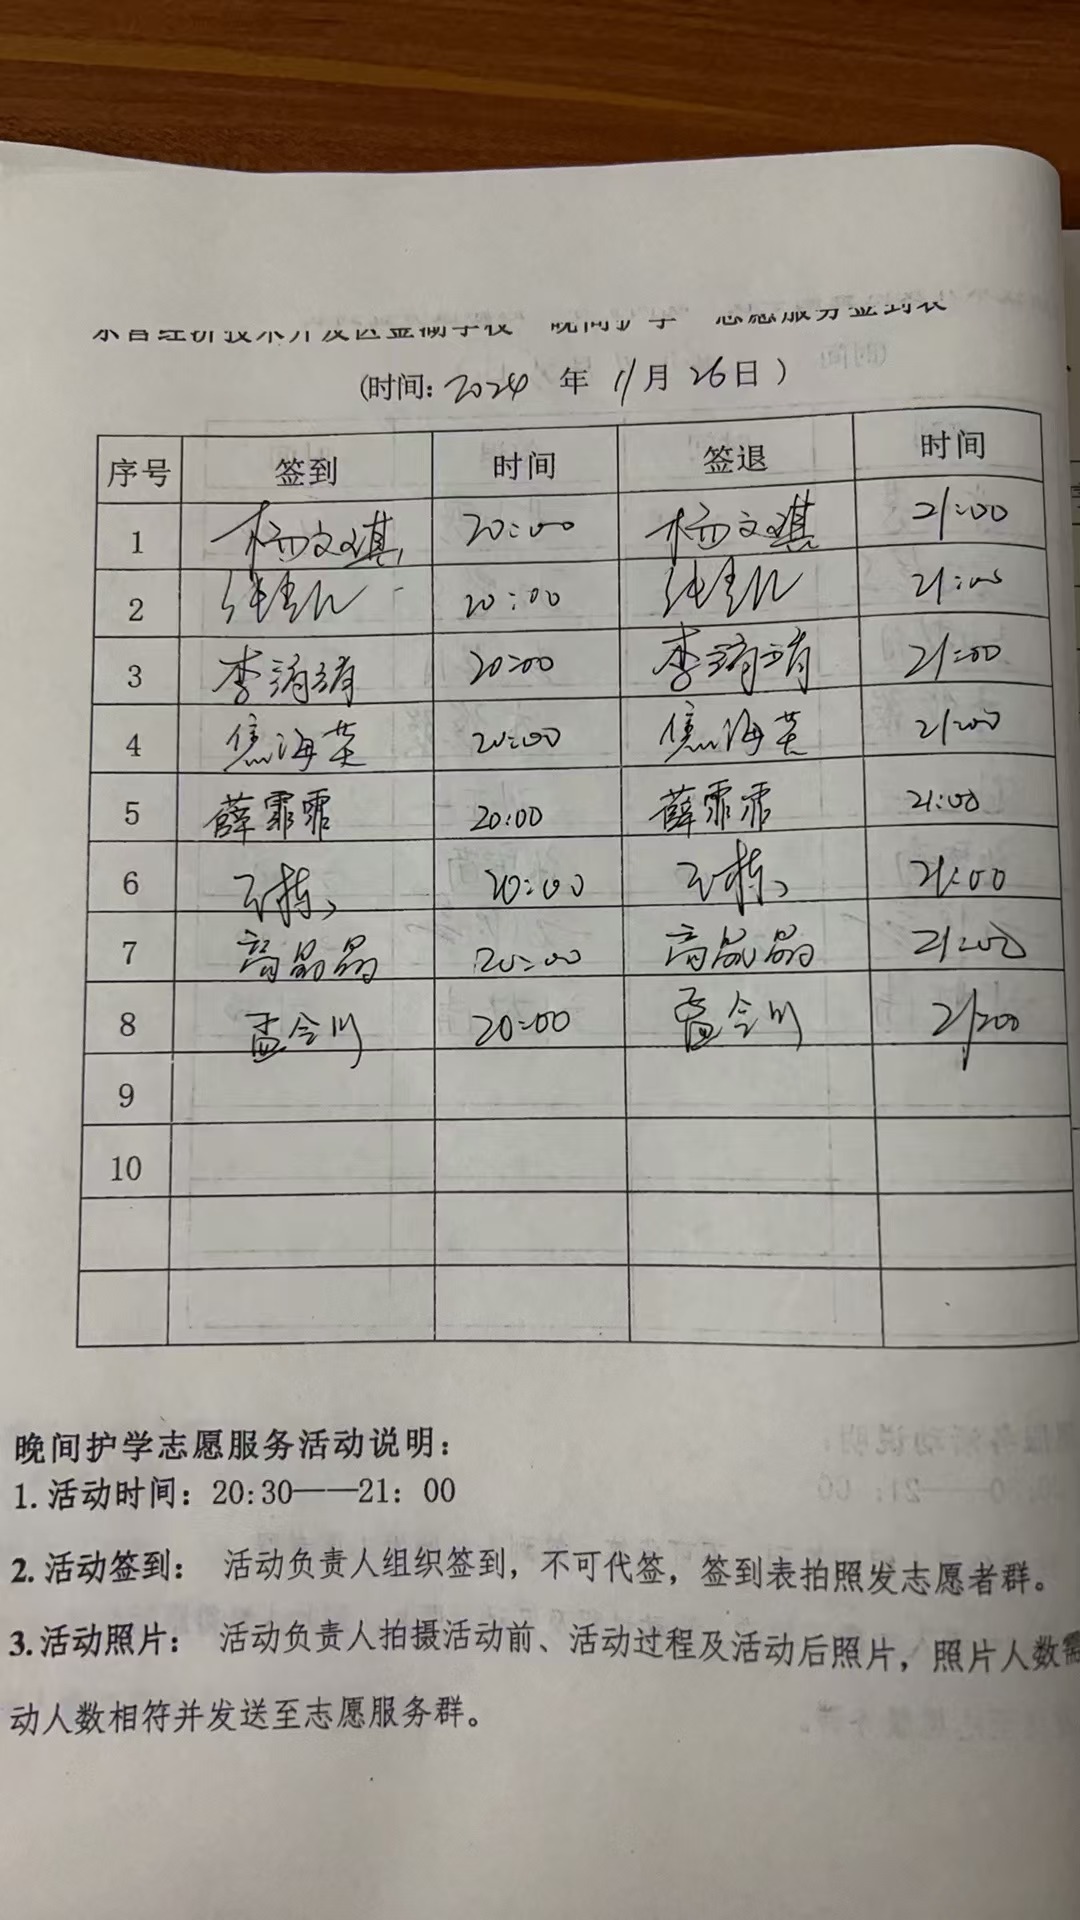 东营经济技术开发区金湖学校“晚间护学”志愿服务签到表
(时间: 2024 年 11月 26日 )
序号 签到 时间 签退 时间
1 杨文琪 20:00 杨文琪 21:00
2 20:00 21:00
3 李涛涛 20:00 李涛涛 21:00
4 焦海英 20:00 焦海英 21:00
5 薛霏霏 20:00 薛霏霏 21:00
6 20:00 21:00
7 高晶晶 20:00 高晶晶 21:00
8 孟令川 20:00 孟令川 21:00
9
10
晚间护学志愿服务活动说明:
1.活动时间: 20:30——21: 00
2.活动签到: 活动负责人组织签到, 不可代签, 签到表拍照发志愿者群。
3.活动照片: 活动负责人拍摄活动前、活动过程及活动后照片, 照片人数需
动人数相符并发送至志愿服务群。